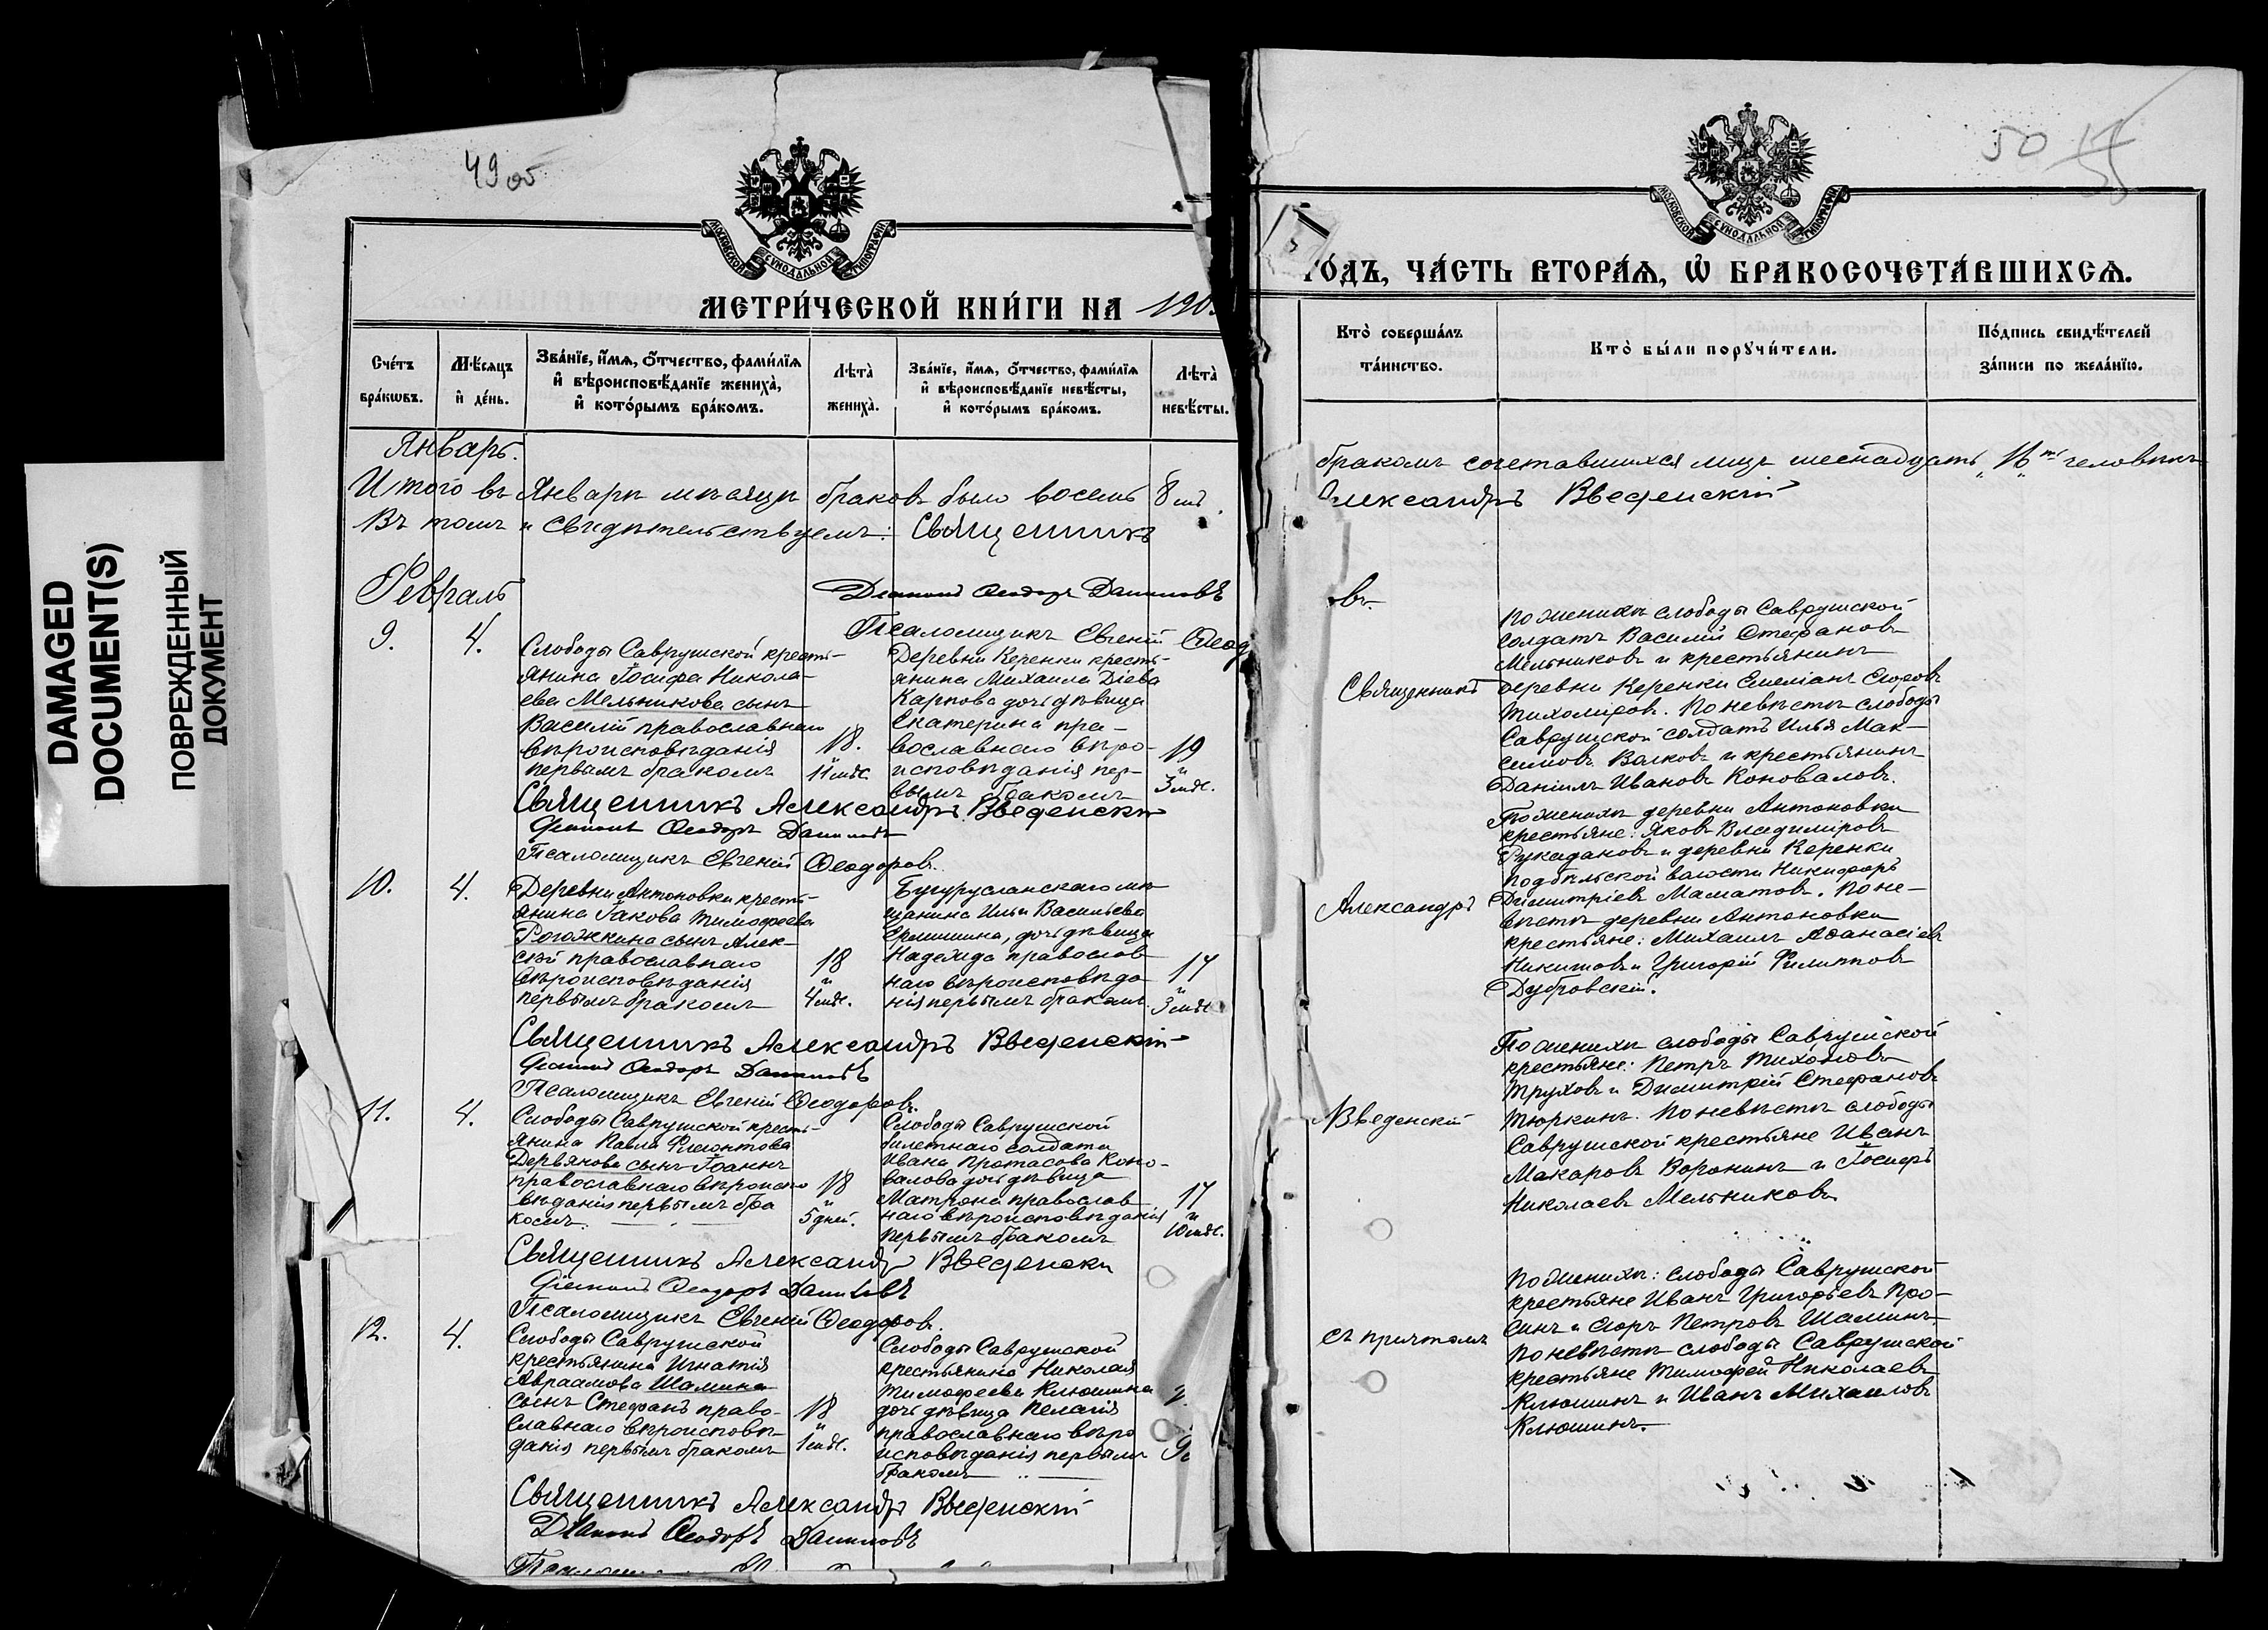 DAMAGED
DOCUMENT(S)
ПОВРЕЖДЕННЫЙ
ДОКУМЕНТ
49 об
МОСКОВСКОЙ СУНОДАЛЬНОЙ ТИПОГРАФІИ
МЕТРИ́ЧЕСКОЙ КНИ́ГИ НА 190
Сче́тъ
бра́кѡвъ.
Мѣ́сяцъ
и҆ де́нь.
Зва́нїе, и҆́мѧ, ѻ҆́тчество, фами́лїѧ
и҆ вѣроисповѣ́данїе жениха̀,
и҆ кото́рымъ бра́комъ.
Лѣ́та̀
жениха̀.
Зва́нїе, и҆́мѧ, ѻ҆́тчество, фами́лїѧ
и҆ вѣроисповѣ́данїе невѣ́сты,
и҆ кото́рымъ бра́комъ.
Лѣ́та̀
невѣ́сты.
Январь.
Итого въ Январѣ мѣсяцѣ браковъ было восемь 8мь.
Въ томъ и свидѣтельствуемъ: Священникъ
Февраль
Діаконъ Ѳеодоръ Даниловъ
Псаломщикъ Евгеній Ѳеод
9.
4.
Слободы Саврушской кресть-
янина Іосифа Никола-
ева Мельникова сынъ
Василій православнаго
вѣроисповѣданія
первымъ бракомъ
18.
11 мѣс.
Деревни Керенки кресть-
янина Михаила Діева
Карпова дочь дѣвица
Екатерина пра-
вославнаго вѣро-
исповѣданія пер-
вымъ бракомъ
19
и
3 мѣс.
Священникъ Александръ Введенскій
Діаконъ Ѳеодоръ Даниловъ
Псаломщикъ Евгеній Ѳеодоровъ.
10.
4.
Деревни Антоновки кресть-
янина Іакова Тимофеева
Рогожкина сынъ Алек-
сѣй православнаго
вѣроисповѣданія
первымъ бракомъ
18
и
4 мѣс.
Бугурусланскаго мѣ-
щанина Ильи Васильева
дочь дѣвица
Надежда православ
наго вѣроисповѣда-
нія первымъ бракомъ.
17
и
3 мѣс
Священникъ Александръ Введенскій
Діаконъ Ѳеодоръ Даниловъ
Псаломщикъ Евгеній Ѳеодоровъ.
11.
4.
Слободы Саврушской кресть-
янина Павла Филонтова
Дервянова сынъ Іоаннъ
православнаго вѣроиспо
вѣданія первымъ бра
комъ.
18
и
5 дней.
Слободы Саврушской
билетнаго солдата
Ивана Протасова Коно-
валова дочь дѣвица
Матрона православ
наго вѣроисповѣданія
первымъ бракомъ
17
и
10 мѣс.
Священникъ Александръ Введенскій
Діаконъ Ѳеодоръ Даниловъ
Псаломщикъ Евгеній Ѳеодоровъ.
12.
4.
Слободы Саврушской
крестьянина Игнатія
Авраамова Шамина
сынъ Стефанъ право-
славнаго вѣроисповѣ-
данія первымъ бракомъ
18
и
1 мѣс.
Слободы Саврушской
крестьянина Николая
Тимофеева Клюшина
дочь дѣвица Пелагія
православнаго вѣро
исповѣданія первымъ
бракомъ
9
Священникъ Александръ Введенскій
Діаконъ Ѳеодоръ Даниловъ
50
МОСКОВСКОЙ СУНОДАЛЬНОЙ ТИПОГРАФІИ
ГО́ДЪ, ЧА́СТЬ ВТОРА́Ѧ, Ѡ҆ БРАКОСОЧЕТА́ВШИХСѦ.
Кто̀ соверша́лъ
та́инство.
Кто̀ бы́ли порꙋчи́тели.
По́дпись свидѣ́телей
за́писи по жела́нїю.
бракомъ сочетавшихся лицъ шеснадцать "16ть" человѣкъ
Александръ Введенскій
овъ.
Священникъ
По женихѣ слободы Саврушской
солдатъ Василій Стефановъ
Мельниковъ и крестьянинъ
деревни Керенки Емеліанъ Егоровъ
Тихомировъ. По невѣстѣ слободы
Саврушской солдатъ Илья Мак-
симовъ Волковъ и крестьянинъ
Даніилъ Ивановъ Коноваловъ.
Александръ
По женихѣ деревни Антоновки
крестьяне: Яковъ Владиміровъ
Рукадановъ и деревни Керенки
Подбѣльской волости Никифоръ
Димитріевъ Маматовъ. По не-
вѣстѣ деревни Антоновки
крестьяне: Михаилъ Аѳанасіевъ
Никитовъ и Григорій Филипповъ
Дубровскій.
Введенскій
По женихѣ слободы Саврушской
крестьяне: Петръ Тихоновъ
Труховъ и Димитрій Стефановъ
Тюркинъ. По невѣстѣ слободы
Саврушской крестьяне Иванъ
Макаровъ Воронинъ и Іосифъ
Николаевъ Мельниковъ
съ причтомъ
По женихѣ: слободы Саврушской
крестьяне Иванъ Григорьевъ Про-
синъ и Егоръ Петровъ Шаминъ.
По невѣстѣ слободы Саврушской
крестьяне Тимофей Николаевъ
Клюшинъ и Иванъ Михаиловъ
Клюшинъ.